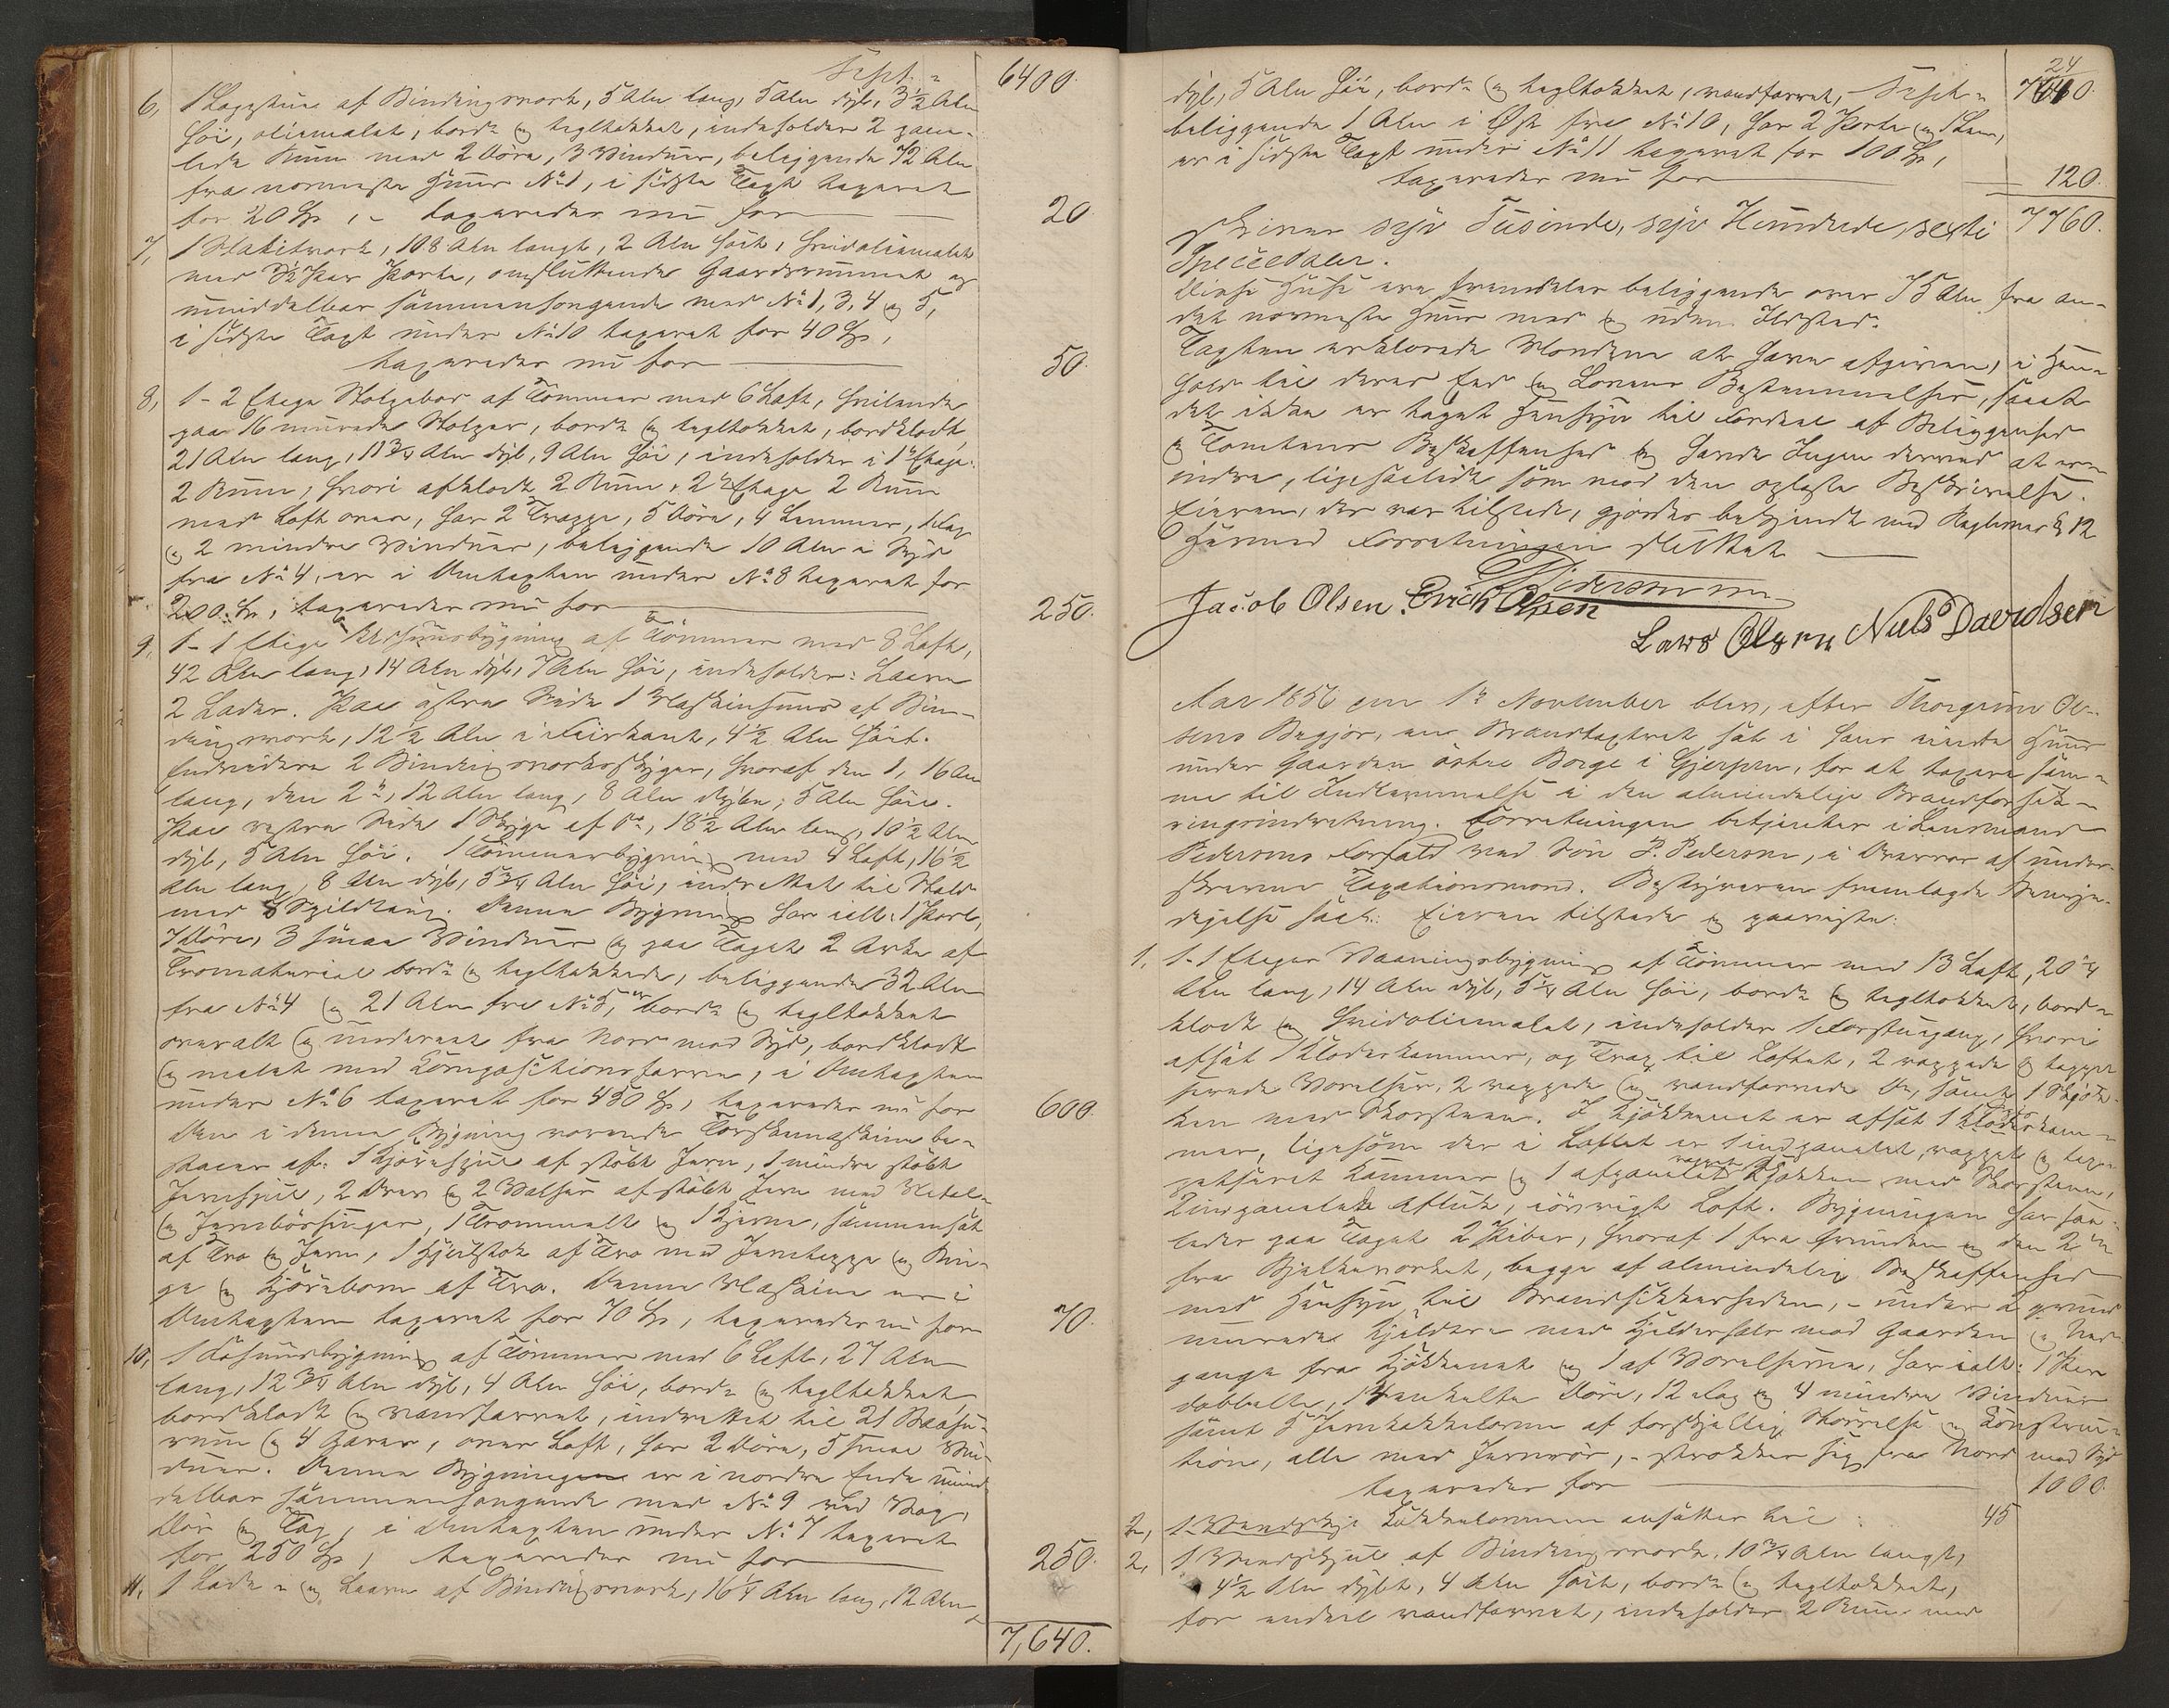 Trspt. 6400.
6, 1 Lagstue af Bindingsværk, 5 Alen lang, 5 Alen dyb, 3 1/2 Alen
höi, oliemalet, bord- og tegltækket, indeholder 2
Rum med 2 Döre, 3 Vinduer, beliggende 72 Alen
fra nærmeste Huus No 1, i sidste Taxt taxeret
for 20 Spd, - taxeredes nu for 20
7, 1 Stakitværk, 108 Alen langt, 2 Alen höit, hvidoliemalet
med Par Porte, omsluttende Gaardsrummet og
umiddelbar sammenhængende med No 1, 3, 4 og 5,
i sidste Taxt under No 10 taxeret for 40 Spd,
taxeredes nu for 50.
8, 1 - 2 Etages Stolpebod af Tømmer med 6 Laft, hvilende
paa 16 murede Stolper, bord- og tegltækket, bordklædt,
21 Alen lang, 11 3/4 Alen dyb, 9 Alen höi, indeholder i 1e Etage:
2 Rum, hvori afklædt 2 Rum, 2den Etage 2 Rum
med Loft over, har 2 Trappe, 5 Döre, 4 Lemmer, 1 Fag
og 2 mindre Vinduer, beliggende 10 Alen i Syd
fra No 4, er i Omtaxten under No 8 taxeret for
200 Spd, taxeredes nu for 250.
9, 1 - 1 Etage Udhuusbygning af Tömmer med 8 Laft,
42 Alen lang, 14 Alen dyb, 7 Alen höi, indeholder: Laave
2 Lader. Paa östre Side 1 Maskinhuus af Bin-
dingsværk, 12 1/2 Alen i Fiirkant, 4 1/2 Alen höit.
Endvidere 2 Bindingsværksskygger, hvoraf den 1, 16 Alen
lang, den 2den, 12 Alen lang, 8 Alen dybe, 5 Alen höie.
Paa vestre Side 1 Skygge af do, 18 1/2 Alen lang, 10 1/2 Alen
dyb, 5 Alen höi. 1 Tömmerbygning med 4 Laft, 16 1/2
Alen lang, 8 Alen dyb, 5 3/4 Alen höi, indrettet til Stald
med 8 Spildtoug. Denne Bygning har ialt: 1 Port,
7 Döre, 3 smaa Vinduer og paa Taget 2 Arke af
Træmateriale bord- og tegltækkede, beliggende 32 Alen
fra No 4 og 21 Alen fra No 5, er bord- og tegltækket
overalt og udvendt fra Nord mod Syd, bordklædt
og malet med Compositionsfarve, i Omtaxten
under No 6 taxeret for 450 Spd, taxeredes nu for 600.
Den i denne Bygning værende Tærskemaskine be-
staaer af: 1 Kjörehjul af stöbt Jern, 1 mindre stöbt
Jernhjul, 2 Drev og 2 Valser af stöbt Jern med Metal-
og Jernbösninger, 1 Trommel og 1 Hjerne, sammensat
af Træ og Jern, 1 Hjulstok af Træ med Jerntappe og Rin-
ge og Kjörebom af Træ. Denne Maskine er i
Omtaxten taxeret for 70 Spd, taxeredes nu for 70.
10, 1 Fæhuusbygning af Tömmer med 6 Laft, 27 Alen
lang, 12 3/4 Alen dyb, 4 Alen höi, bord- og tegltækket
bordklædt og vandfarvet, indrettet til 21 Baase-
rum og 4 Garer, over Loft, har 2 Döre, 5 smaa Vin-
duer. Denne Bygning er i nordre Ende umid-
delbar sammenhængende med No 9 ved Væg,
Dör og Tag, i Omtaxten under No 7 taxeret
for 250 Spd, taxeredes nu for 250.
11, 1 Lade- og Laave af Bindingsværk, 16 1/4 Alen lang, 12 Alen
7,640.
24
dyb, 5 Alen höi, bord- og tegltækket, vandfarvet, Trspt. 7640.
beliggende 1 Alen i Öst fra No 10, har 2 Porte og 1 Lem,
er i sidste Taxt under No 11 taxeret for 100 Spd,
taxeredes nu for 120.
skriver syv Tusinde, syv Hundrede, sexti 7760.
Speciedaler.
Disse Huse ere fremdeles beliggende over 75 Alen fra an-
det nærmeste Huus med og uden Ildsted.
Taxten erklærede Mændene at have afgiven, i Hen-
hold til deres Eed og Lovens Bestemmelser, saaat
det ikke er taget Hensyn til Fordeel af Beliggenhed
og Tomtens Beskaffenhed og havde Ingen derved at er-
indre, ligesaalidt som mod den oplæste Beskrivelse.
Eieren, der var tilstede, gjordes bekjendt med Reglernes § 12
Hermed Forretningen sluttet
Pedersen
Jacob Olsen. Erich Olsen
Lars Olsen Niels Davidsen
Aar 1856 den 1e November blev, efter Thorgrim Ol-
sens Begjær, en Brandtaxtret sat i hans eiende Huus
under Gaarden östre Borge i Gjerpen, for at taxere sam-
me til Indlemmelse i den almindelige Brandforsik-
ringsindretning. Forretningen betjentes i Lensmand
Pedersens Forfald ved Sön P. Pedersen, i Overvær af under-
skrevne Taxationsmænd. Bestyreren fremlagde Bemyn-
digelse saal: Eieren tilstede og paaviste:
1, 1 - 1 Etages Vaaningsbygning af Tömmer med 13 Laft, 20 1/4
Alen lang, 14 Alen dyb, 5 1/4 Alen höi, bord- og tegltækket, bord-
klædt og hvidoliemalet, indeholder 1 Forstuegang, hvori
afsat 1 Klædekammer, og Trap til Loftet, 2 pappede og tappet-
serede Værelser, 2 pappede og vandfarvede do, samt 1 Kjök-
ken med Skorsteen. I Kjökkenet er afsat 1 Klædekam-
mer, ligesom der i Loftet er 1 indpanelet, pappet og tap-
petseret Kammer og 1 afpanelet Kjökken med Skorsteen,
2 indpanelede Aflukke, iövrigt Loft. Bygningen har saa-
ledes paa Taget 2 Piber, hvoraf 1 fra Grunden og den 2den
fra Bjelkeværket, begge af almindelig Beskaffenhed
med Hensyn til Brandsikkerheden, - under 2 grund-
murede Kjældere med Kjelderhals mod Gaarden og Ned-
gange fra Kjökkenet og 1 af Værelserne, har ialt: 1 Par
dobbelte, 14 enkelte Döre, 12 Fag og 4 mindre Vinduer
samt 5 Jernkakkelovne af forskjellig Störrelse og Construc-
tion, alle med Jernrör, - strækker sig fra Nord mod Syd
taxeredes for 1000.
2, 1 Vedskju Kakkelovnene ansattes til: 45
2, 1 Vedskjul af Bindingsværk, 10 3/4 Alen langt,
4 1/2 Alen dybt, 4 Alen höit, bord- og tegltækket,
for endeel vandfarvet, indeholder 2 Rum med